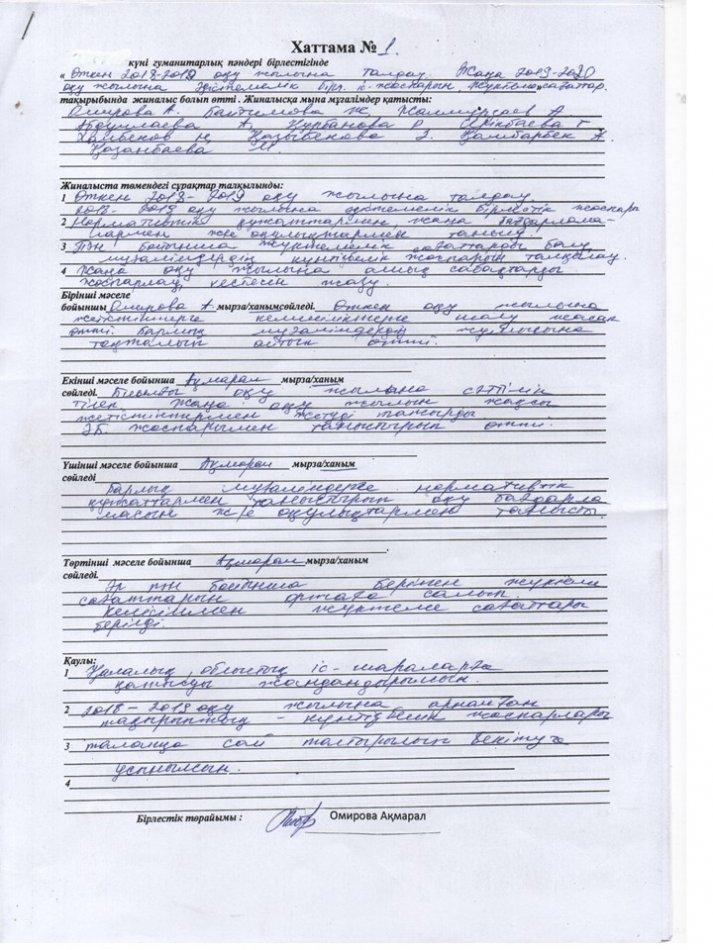 Хаттама № 1.
күні гуманитарлық пәндері бірлестігінде
« Өткен 2018-2019 оқу жылына талдау. Жаңа 2019-2020
оқу жылына әдістемелік бірл. ж. жоспарын, жүктеме сағаттар.
тақырыбында жиналыс болып өтті . Жиналысқа мына мұғалімдер қатысты:
Омирова А. Ж. А
Абдуллаева А, Курбанова Р Г
Н, Қазыбекова З. Қамбарбек А.
Қазанбаева М.
Жиналыста төмендегі сұрақтар талқыланды:
1 Өткен 2018-2019 оқу жылына талдау
2018-2019 оқу жылына әдістемелік бірлестік жоспары
2 Нормативтік құжаттармен, жаңа бағдарлама-
лармен және оқулықтармен танысу.
3 Пән бойынша жүктемелік сағаттарды бөлу
мұғалімдердің күнтізбелік жоспарын талқылау.
4 Жаңа оқу жылына ашық сабақтарды
жоспарлау, кестесін жазу.
Бірінші мәселе
бойынша Омирова А мырза/ханымсөйледі. Өткен оқу жылына
жетістіктерге кемшіліктерге шолу жасап
өтті. Барлық мұғалімдердің жұмысына
тоқталып айтып өтті.
Екінші мәселе бойынша Ақмарал мырза/ханым
сөйледі. Биылғы оқу жылына сәттілік
тілеп жаңа оқу жылын жақсы
жетістіктермен жетуді тапсырды.
ӘБ жоспарымен таныстырып өтті.
Үшінші мәселе бойынша Ақмарал мырза/ханым
сөйледі
Барлық мұғалімдерге нормативтік
құжаттармен таныстырып оқу бағдарла
масын және оқулықтармен танысты.
Төртінші мәселе бойынша Ақмарал мырза/ханым
сөйледі.
Әр пән бойынша берілген жүктеме
сағаттарын ортаға салып.
Келісіммен жүктеме сағаттары
берілді.
Қаулы:
1 Қалалық, облыстық іс-шараларға
қатысуы жандандырылсын.
2 2018-2019 оқу жылына арналған
тақырыптық - күнтізбелік жоспарлары
3 талапқа сай толтырылып бекітуге
ұсынылсын.
4
Бірлестік төрайымы : Омирова Ақмарал